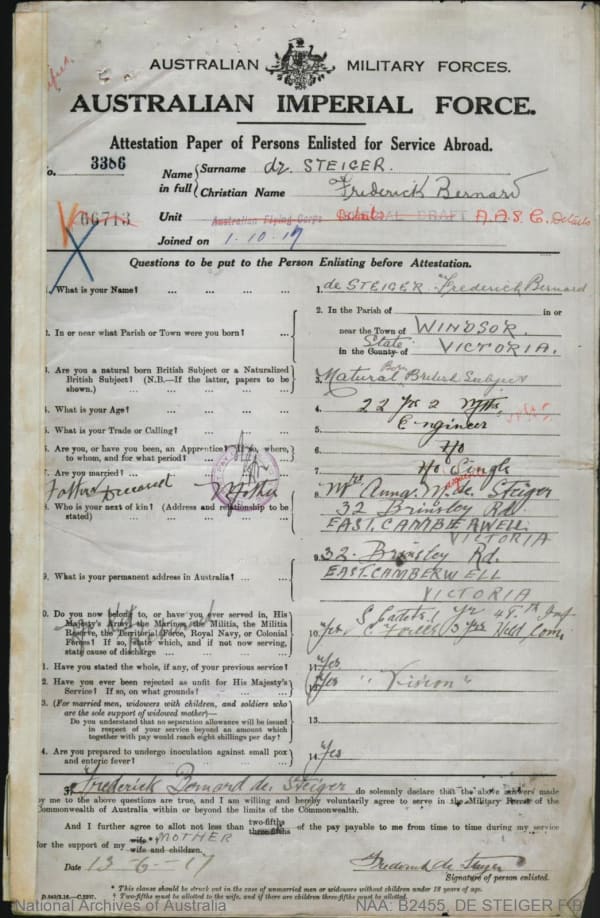 AUSTRALIAN MILITARY FORCES.
AUSTRALIAN IMPERIAL FORCE.
Attestation Paper of Persons Enlisted for Service Abroad.
o. 3386
Name in full
Surname de STEIGER.
Christian Name Frederick Bernard
66713
Unit Australian Flying Corps A.A.S.C. Details
Joined on 1.10.17
Questions to be put to the Person Enlisting before Attestation.
1. What is your Name? ... ... ... 1. de STEIGER Frederick Bernard
2. In or near what Parish or Town were you born? ... 2. In the Parish of in or
near the Town of WINDSOR.
State
in the County of VICTORIA.
3. Are you a natural born British Subject or a Naturalized
British Subject? (N.B.—If the latter, papers to be
shown.) ... 3. Natural Born British Subject
4. What is your Age? ... 4. 22 yrs 2 mths
5. What is your Trade or Calling? ... 5. Engineer
6. Are you, or have you been, an Apprentice? If so, where,
to whom, and for what period? ... 6. No
7. Are you married? ... 7. No Single
Father deceased Mother
8. Who is your next of kin? (Address and relationship to be
stated) 8. Mrs Anna. M. de. Steiger
32 Brinsley Rd.
EAST. CAMBERWELL
VICTORIA
9. What is your permanent address in Australia? ... 9. 32. Brinsley Rd.
EAST. CAMBERWELL
VICTORIA
0. Do you now belong to, or have you ever served in, His
Majesty's Army, the Marines, the Militia, the Militia
Reserve, the Territorial Force, Royal Navy, or Colonial
Forces? If so, state which, and if not now serving,
state cause of discharge ... 10. Yes S. Cadets 1 yr 48th Inf
C. Forces 3 yrs Field Com.
1. Have you stated the whole, if any, of your previous service? 11. Yes
2. Have you ever been rejected as unfit for His Majesty's
Service? If so, on what grounds? 12. Yes "Vision"
3. (For married men, widowers with children, and soldiers who
are the sole support of widowed mother)—
Do you understand that no separation allowance will be issued
in respect of your service beyond an amount which
together with pay would reach eight shillings per day? 13.
4. Are you prepared to undergo inoculation against small pox
and enteric fever? ... 14. Yes
Frederick Bernard de Steiger do solemnly declare that the above answers made
by me to the above questions are true, and I am willing and hereby voluntarily agree to serve in the Military Forces of the
Commonwealth of Australia within or beyond the limits of the Commonwealth.
And I further agree to allot not less than two-fifths three-fifths of the pay payable to me from time to time during my service
for the support of my wife* MOTHER
wife and children.
Date 13-6-17 Frederick de Steiger
Signature of person enlisted.
* This clause should be struck out in the case of unmarried men or widowers without children under 18 years of age.
† Two-fifths must be allotted to the wife, and if there are children three-fifths must be allotted.
National Archives of Australia NAA: B2455, DE STEIGER F B